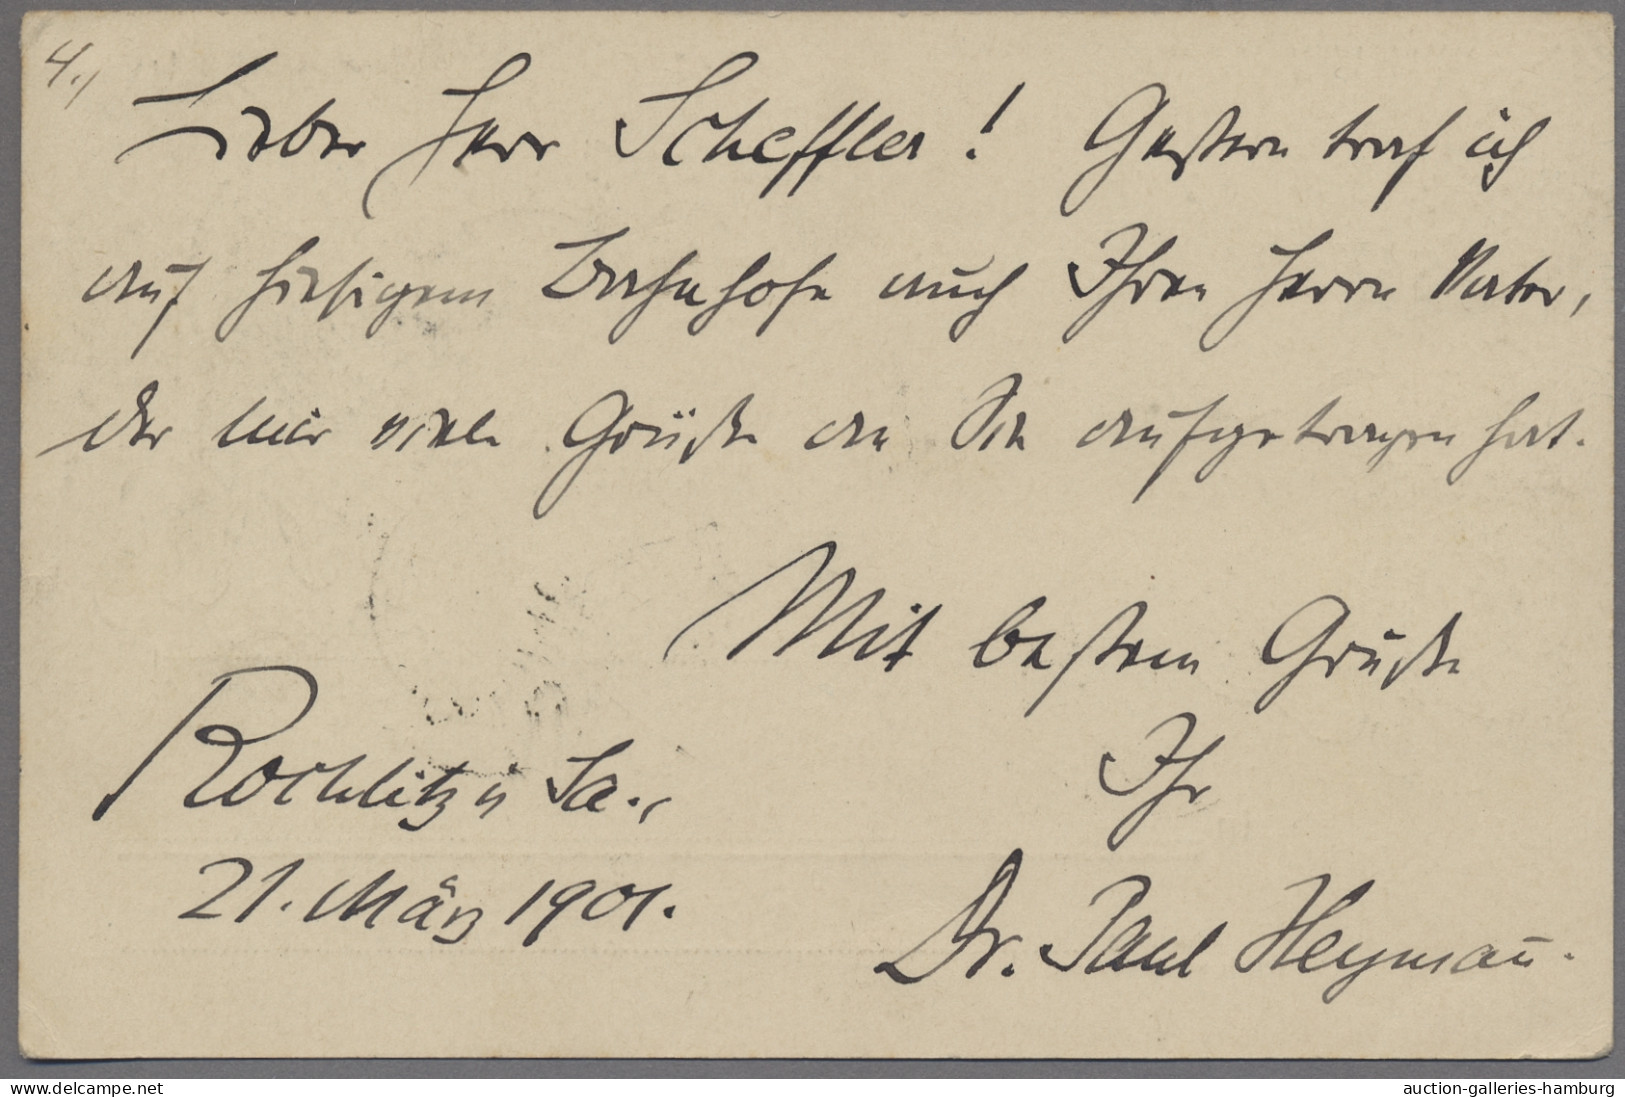 4.)
Lieber Herr Scheffler! Gestern traf ich
auf hiesigem Bahnhofe auch Ihren Herrn Vater,
der mir viele Grüße an Sie aufgetragen hat.
Mit bestem Gruße
Ihr
Dr. Paul Heymañ.
Rochlitz i/Sa.,
21. März 1901.
www.delcampe.net
auction-galleries-hamburg